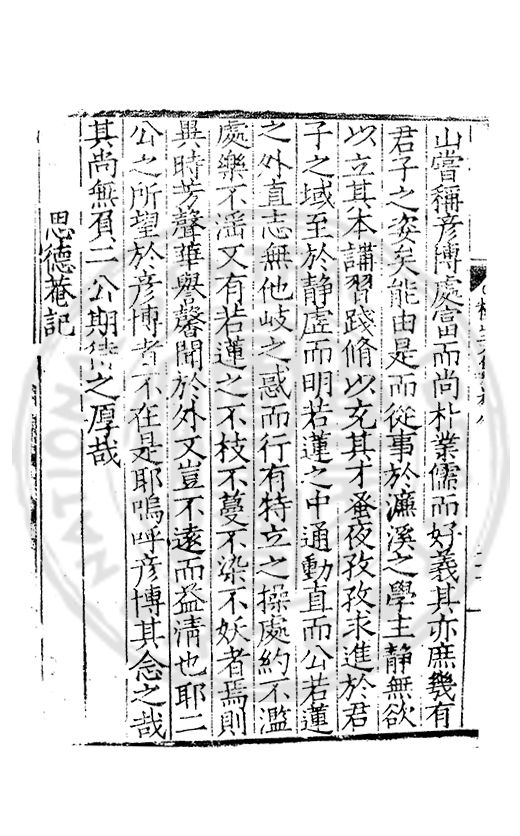 山嘗稱彦博處富而尚朴業儒而好義其亦庶幾有
君子之姿矣能由是而從事於濂溪之學主静無欲
以立其本講習踐脩以充其才蚤夜孜孜求進於君
子之域至於静虚而明若蓮之中通動直而公若蓮
之外直志無他岐之惑而行有特立之操處約不濫
處樂不滛又有若蓮之不枝不蔓不染不妖者焉則
異時芳聲華譽馨聞於外又豈不逺而益清也耶二
公之所望於彦博者不在是耶嗚呼彦博其念之哉
其尚無負二公期待之厚哉
思德菴記